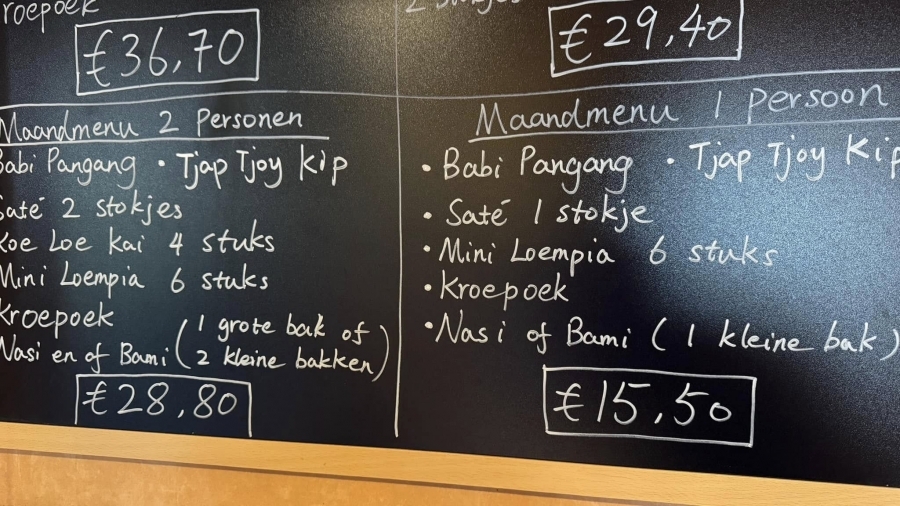 €36,70
€29,40
Maandmenu 2 Personen
Babi Pangang • Tjap Tjoy kip
Saté 2 stokjes
Koe Loe kai 4 stuks
Mini Loempia 6 stuks
Kroepoek
Nasi en of Bami (1 grote bak of
2 kleine bakken)
€28,80
Maandmenu 1 persoon
• Babi Pangang • Tjap Tjoy Kip
• Saté 1 stokje
• Mini Loempia 6 stuks
• Kroepoek
• Nasi of Bami (1 kleine bak)
€15,50